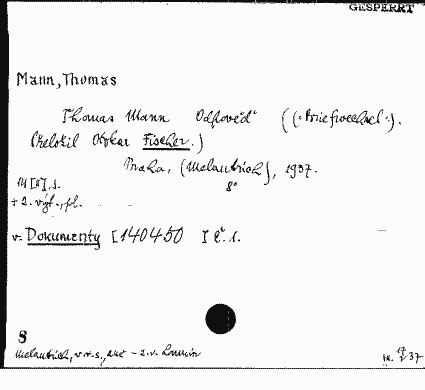 GESPERRT
Mann, Thomas
Thomas Mann Odpověď ((:Briefwechsel:).
Přeložil Otokar Fischer.)
Praha, (Melantrich), 1937.
8°
+ 2. výt., pl.
v. Dokumenty [140450 ] č. 1.
8
Melantrich,
37